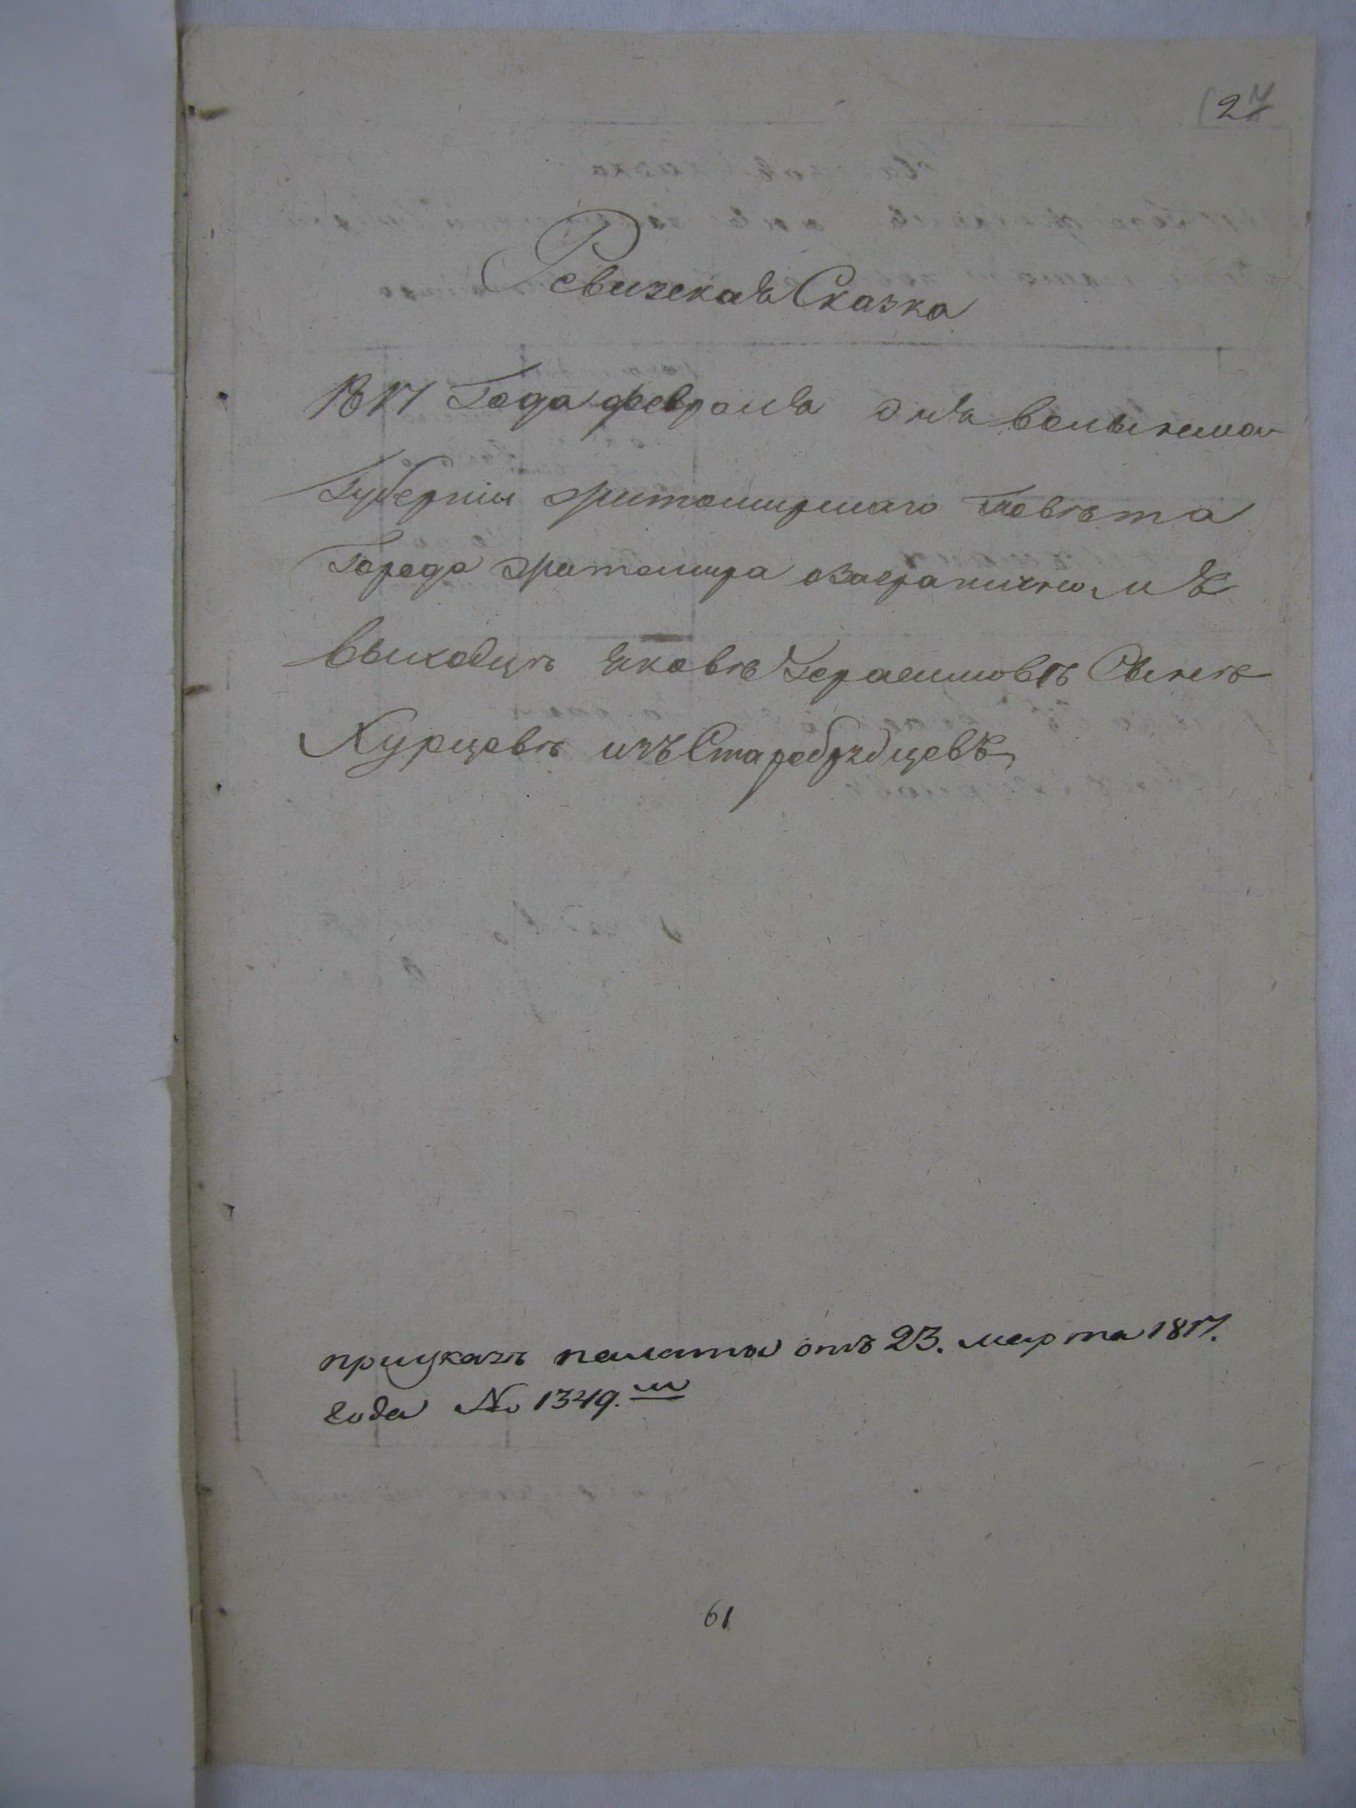 2
Ревизская Сказка
1817 Года февраля дня волынской
Губернiи житомирскаго повѣта
Города житомира озаграничномъ
выходцѣ яковѣ Герасимовѣ Сынѣ
Курцевѣ изъ Старобрядцевъ
приуказѣ палаты отъ 23. марта 1817.
года № 1349.м
61